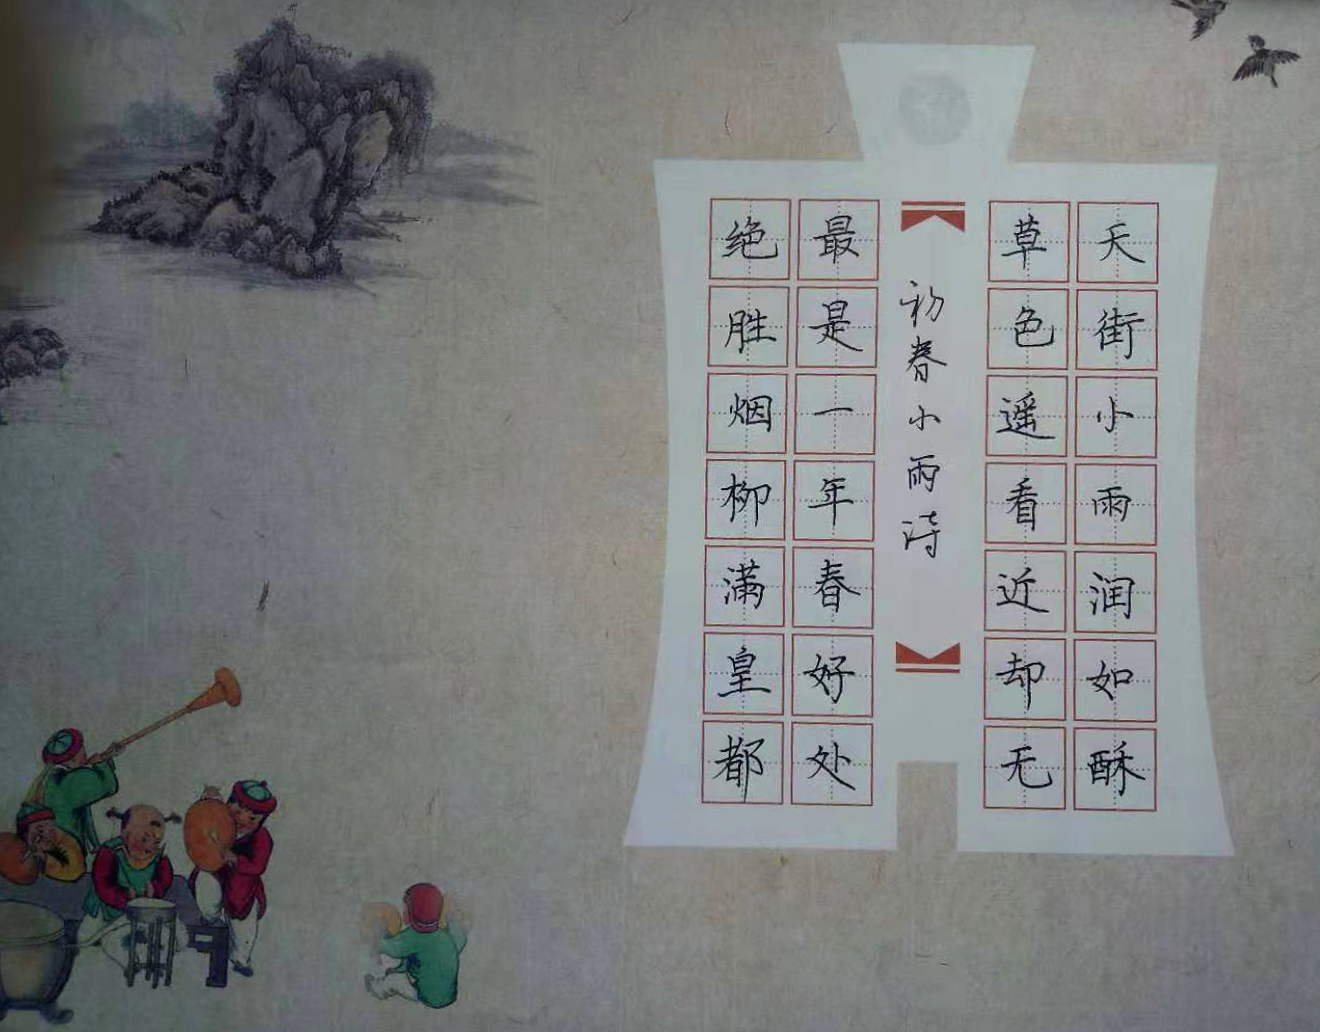 天街小雨润如酥
草色遥看近却无
初春小雨诗
最是一年春好处
绝胜烟柳满皇都